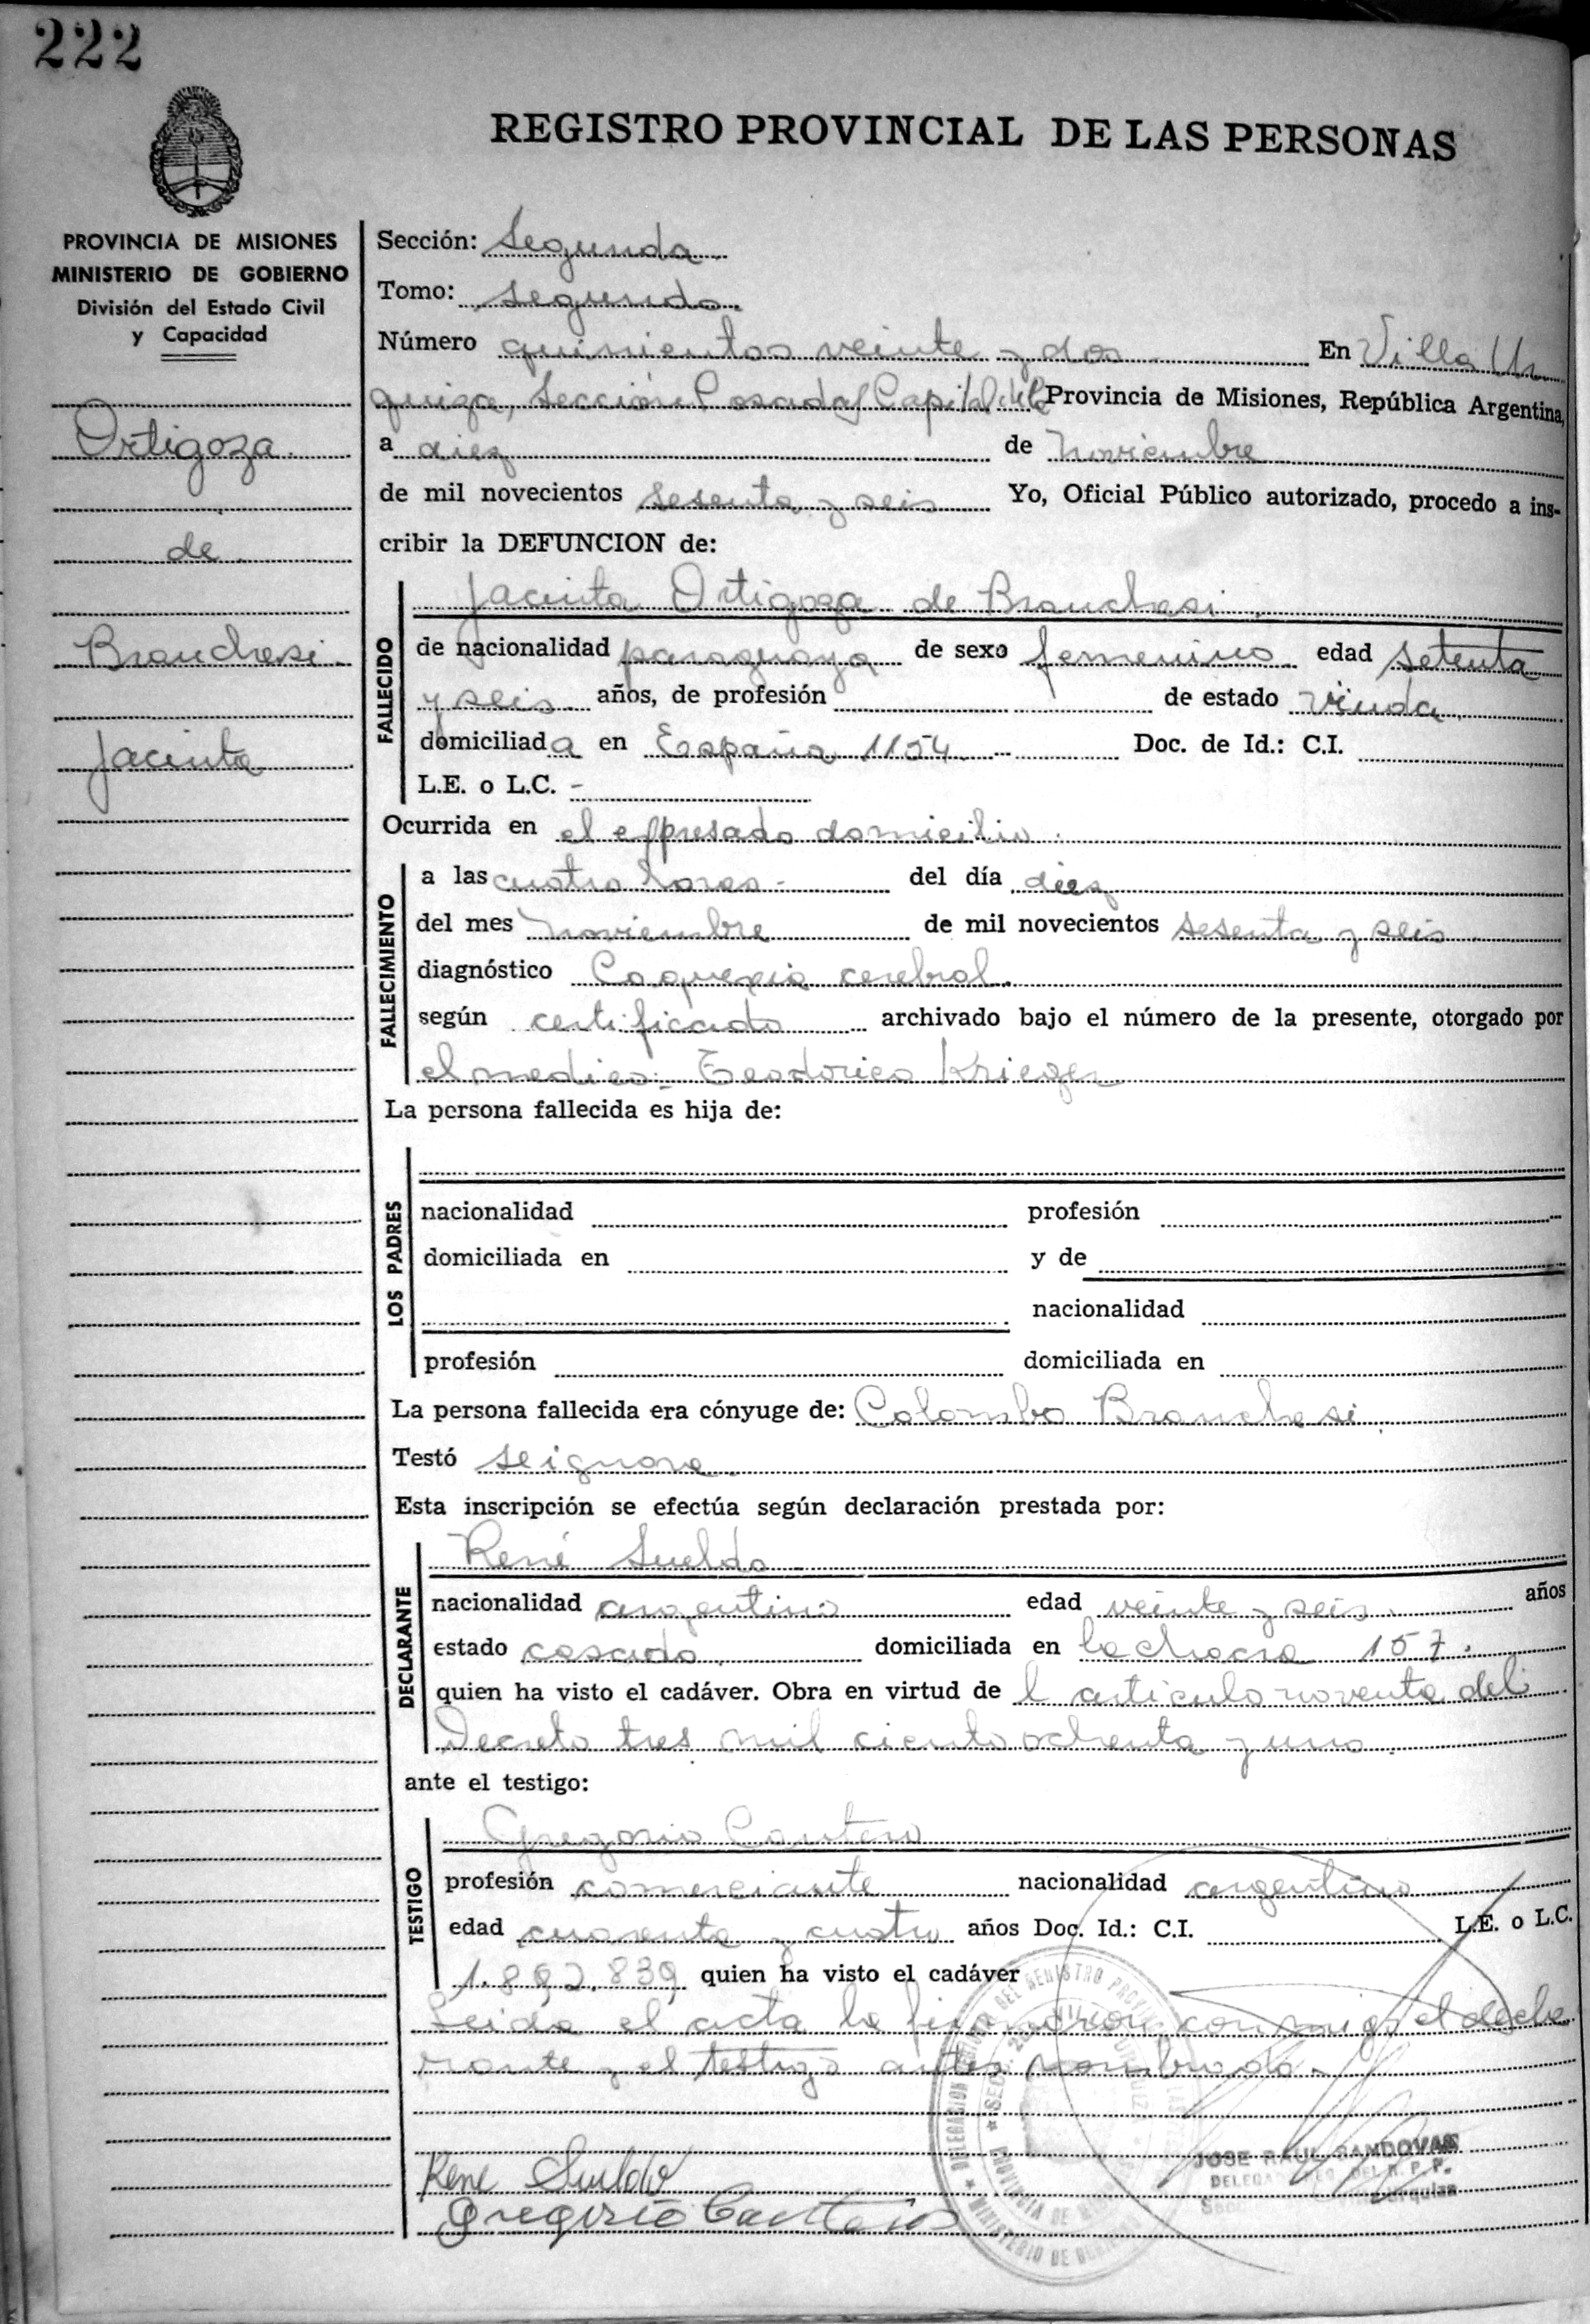 222
REGISTRO PROVINCIAL DE LAS PERSONAS
PROVINCIA DE MISIONES
MINISTERIO DE GOBIERNO
División del Estado Civil
y Capacidad
Ortigoza
de
Branchesi
Jacinta
Sección: Segunda
Tomo: Segundo
Número quinientos veinte y dos En Villa Ur
quiza, Sección Posadas Capital de la Provincia de Misiones, República Argentina,
a diez de Noviembre
de mil novecientos sesenta y seis Yo, Oficial Público autorizado, procedo a ins-
cribir la DEFUNCION de:
FALLECIDO
Jacinta Ortigoza de Branchesi
de nacionalidad paraguaya de sexo femenino edad setenta
y seis años, de profesión de estado viuda
domiciliada en España 1154 Doc. de Id.: C.I.
L.E. o L.C. -
Ocurrida en el expresado domicilio
FALLECIMIENTO
a las cuatro horas - del día diez
del mes Noviembre de mil novecientos sesenta y seis
diagnóstico Caquexia cerebral
según certificado archivado bajo el número de la presente, otorgado por
el medico: Teodorico Krieger
La persona fallecida es hija de:
LOS PADRES
nacionalidad profesión
domiciliada en y de
nacionalidad
profesión domiciliada en
La persona fallecida era cónyuge de: Colombo Branchesi
Testó se ignora
Esta inscripción se efectúa según declaración prestada por:
DECLARANTE
René Sueldo
nacionalidad argentino edad veinte y seis años
estado casado domiciliada en la chacra 157.
quien ha visto el cadáver. Obra en virtud de l articulo noventa del
Decreto tres mil ciento ochenta y uno.
ante el testigo:
TESTIGO
Gregorio Cantero
profesión comerciante nacionalidad argentino
edad cuarenta y cuatro años Doc. Id.: C.I. L.E. o L.C.
1.892.839 quien ha visto el cadáver
Leida el acta la firmaron conmigo el decla
rante y el testigo antes nombrado.-
JOSE RAUL SANDOVAL
René Sueldo
Gregorio Cantero